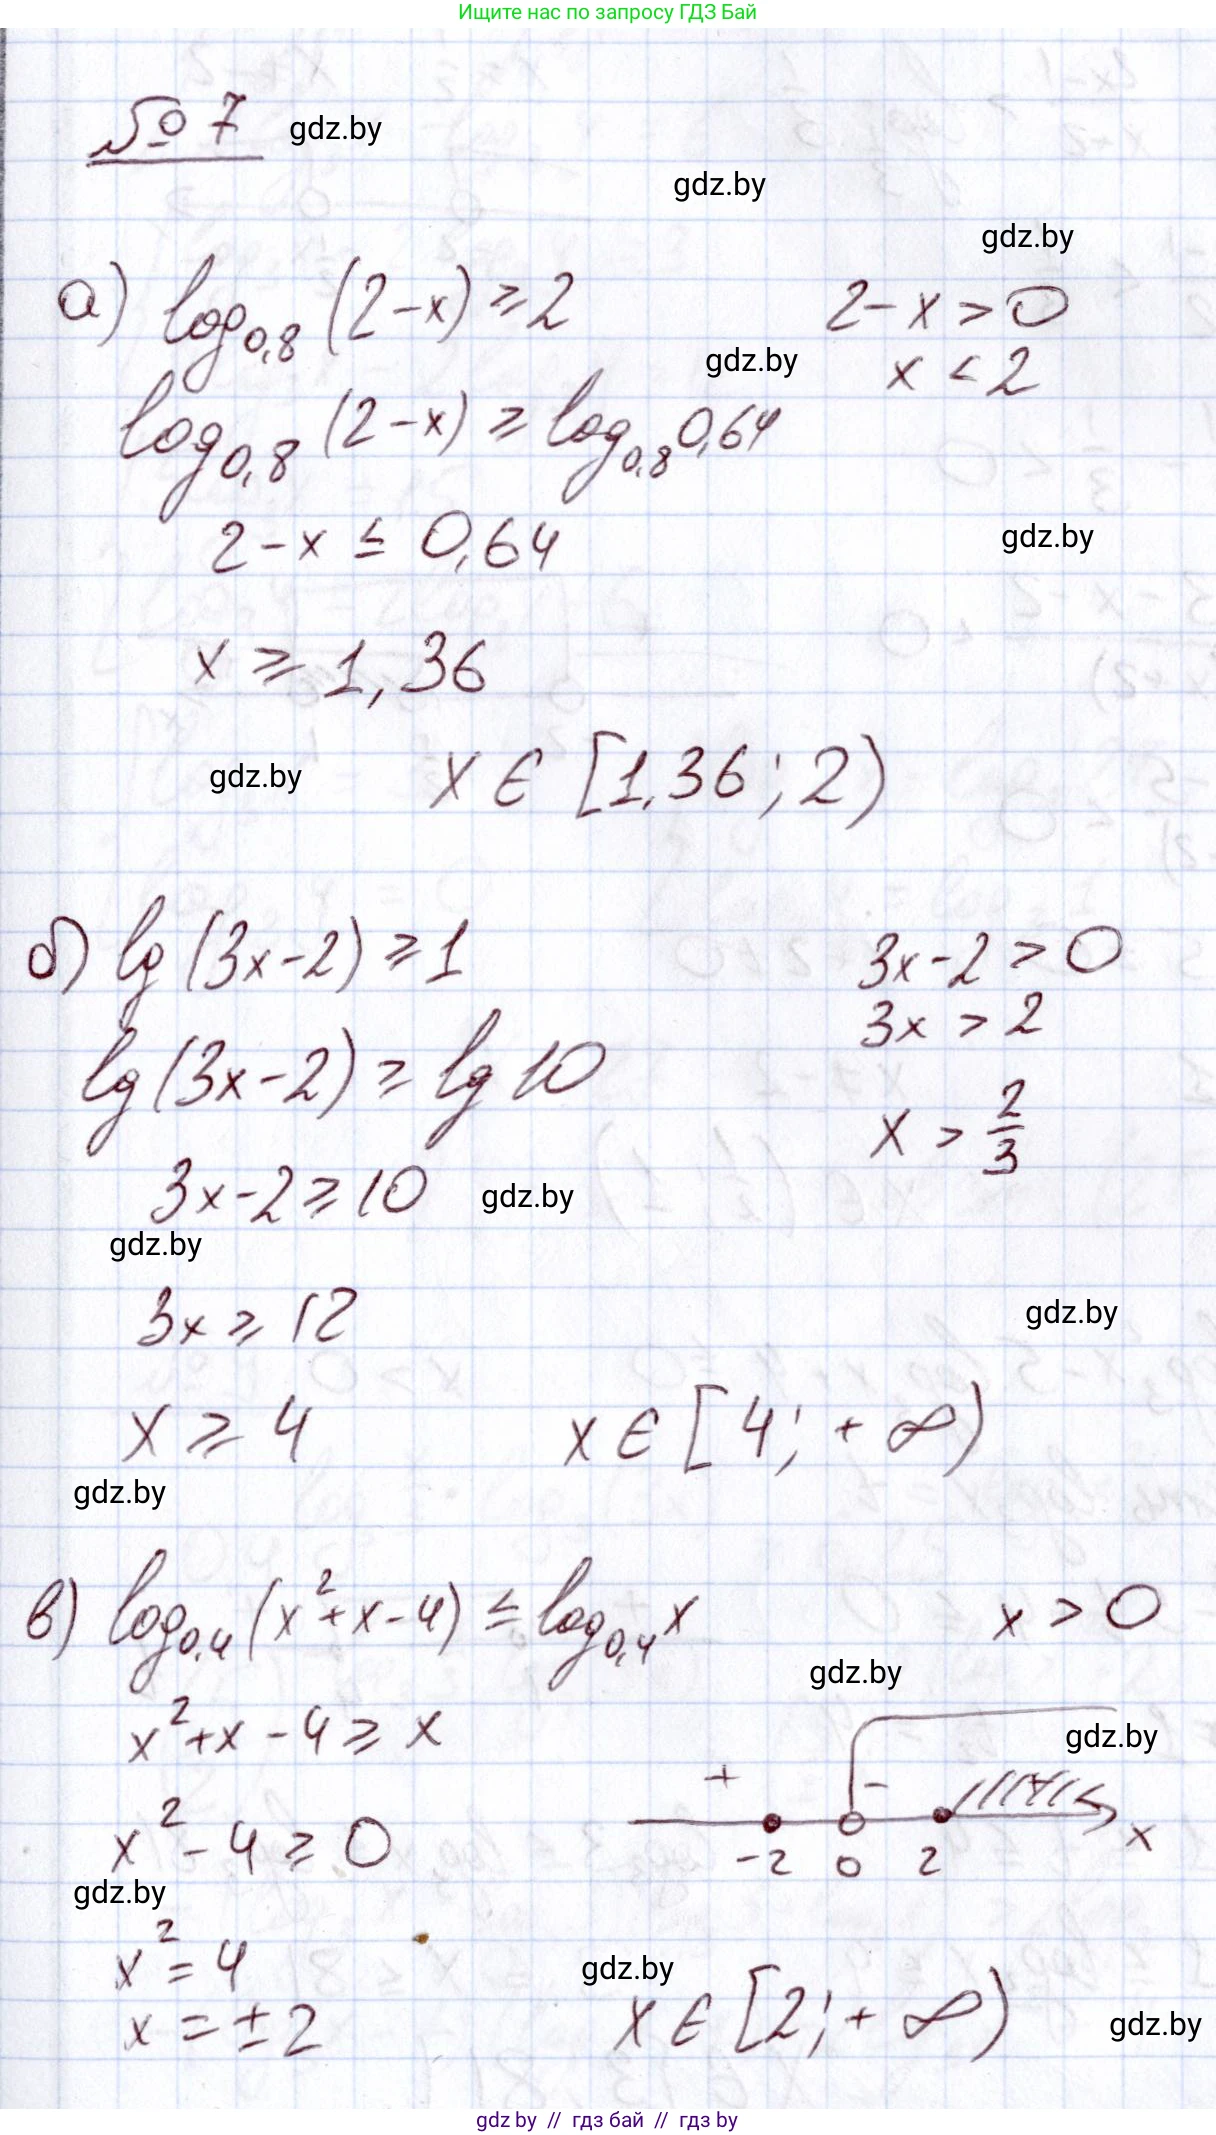 Ищите нас по запросу ГДЗ Бай
№ 7 gdz.by
gdz.by
gdz.by
а) log₀,₈ (2-x) ≥ 2 2-x > 0
gdz.by x < 2
log₀,₈ (2-x) ≥ log₀,₈ 0,64
2-x ≤ 0,64 gdz.by
x ≥ 1,36
gdz.by x ∈ [1,36; 2)
б) lg (3x-2) ≥ 1 3x-2 > 0
3x > 2
lg (3x-2) ≥ lg 10
x > 2/3
3x-2 ≥ 10 gdz.by
gdz.by
3x ≥ 12 gdz.by
x ≥ 4 x ∈ [4; +∞)
gdz.by
в) log₀,₄ (x²+x-4) ≤ log₀,₄ x x > 0
gdz.by
x²+x-4 ≥ x gdz.by
+ - +
x²-4 ≥ 0 -2 0 2 x
gdz.by
x² = 4 gdz.by
x = ±2 x ∈ [2; +∞) gdz.by
gdz by // гдз бай // гдз by